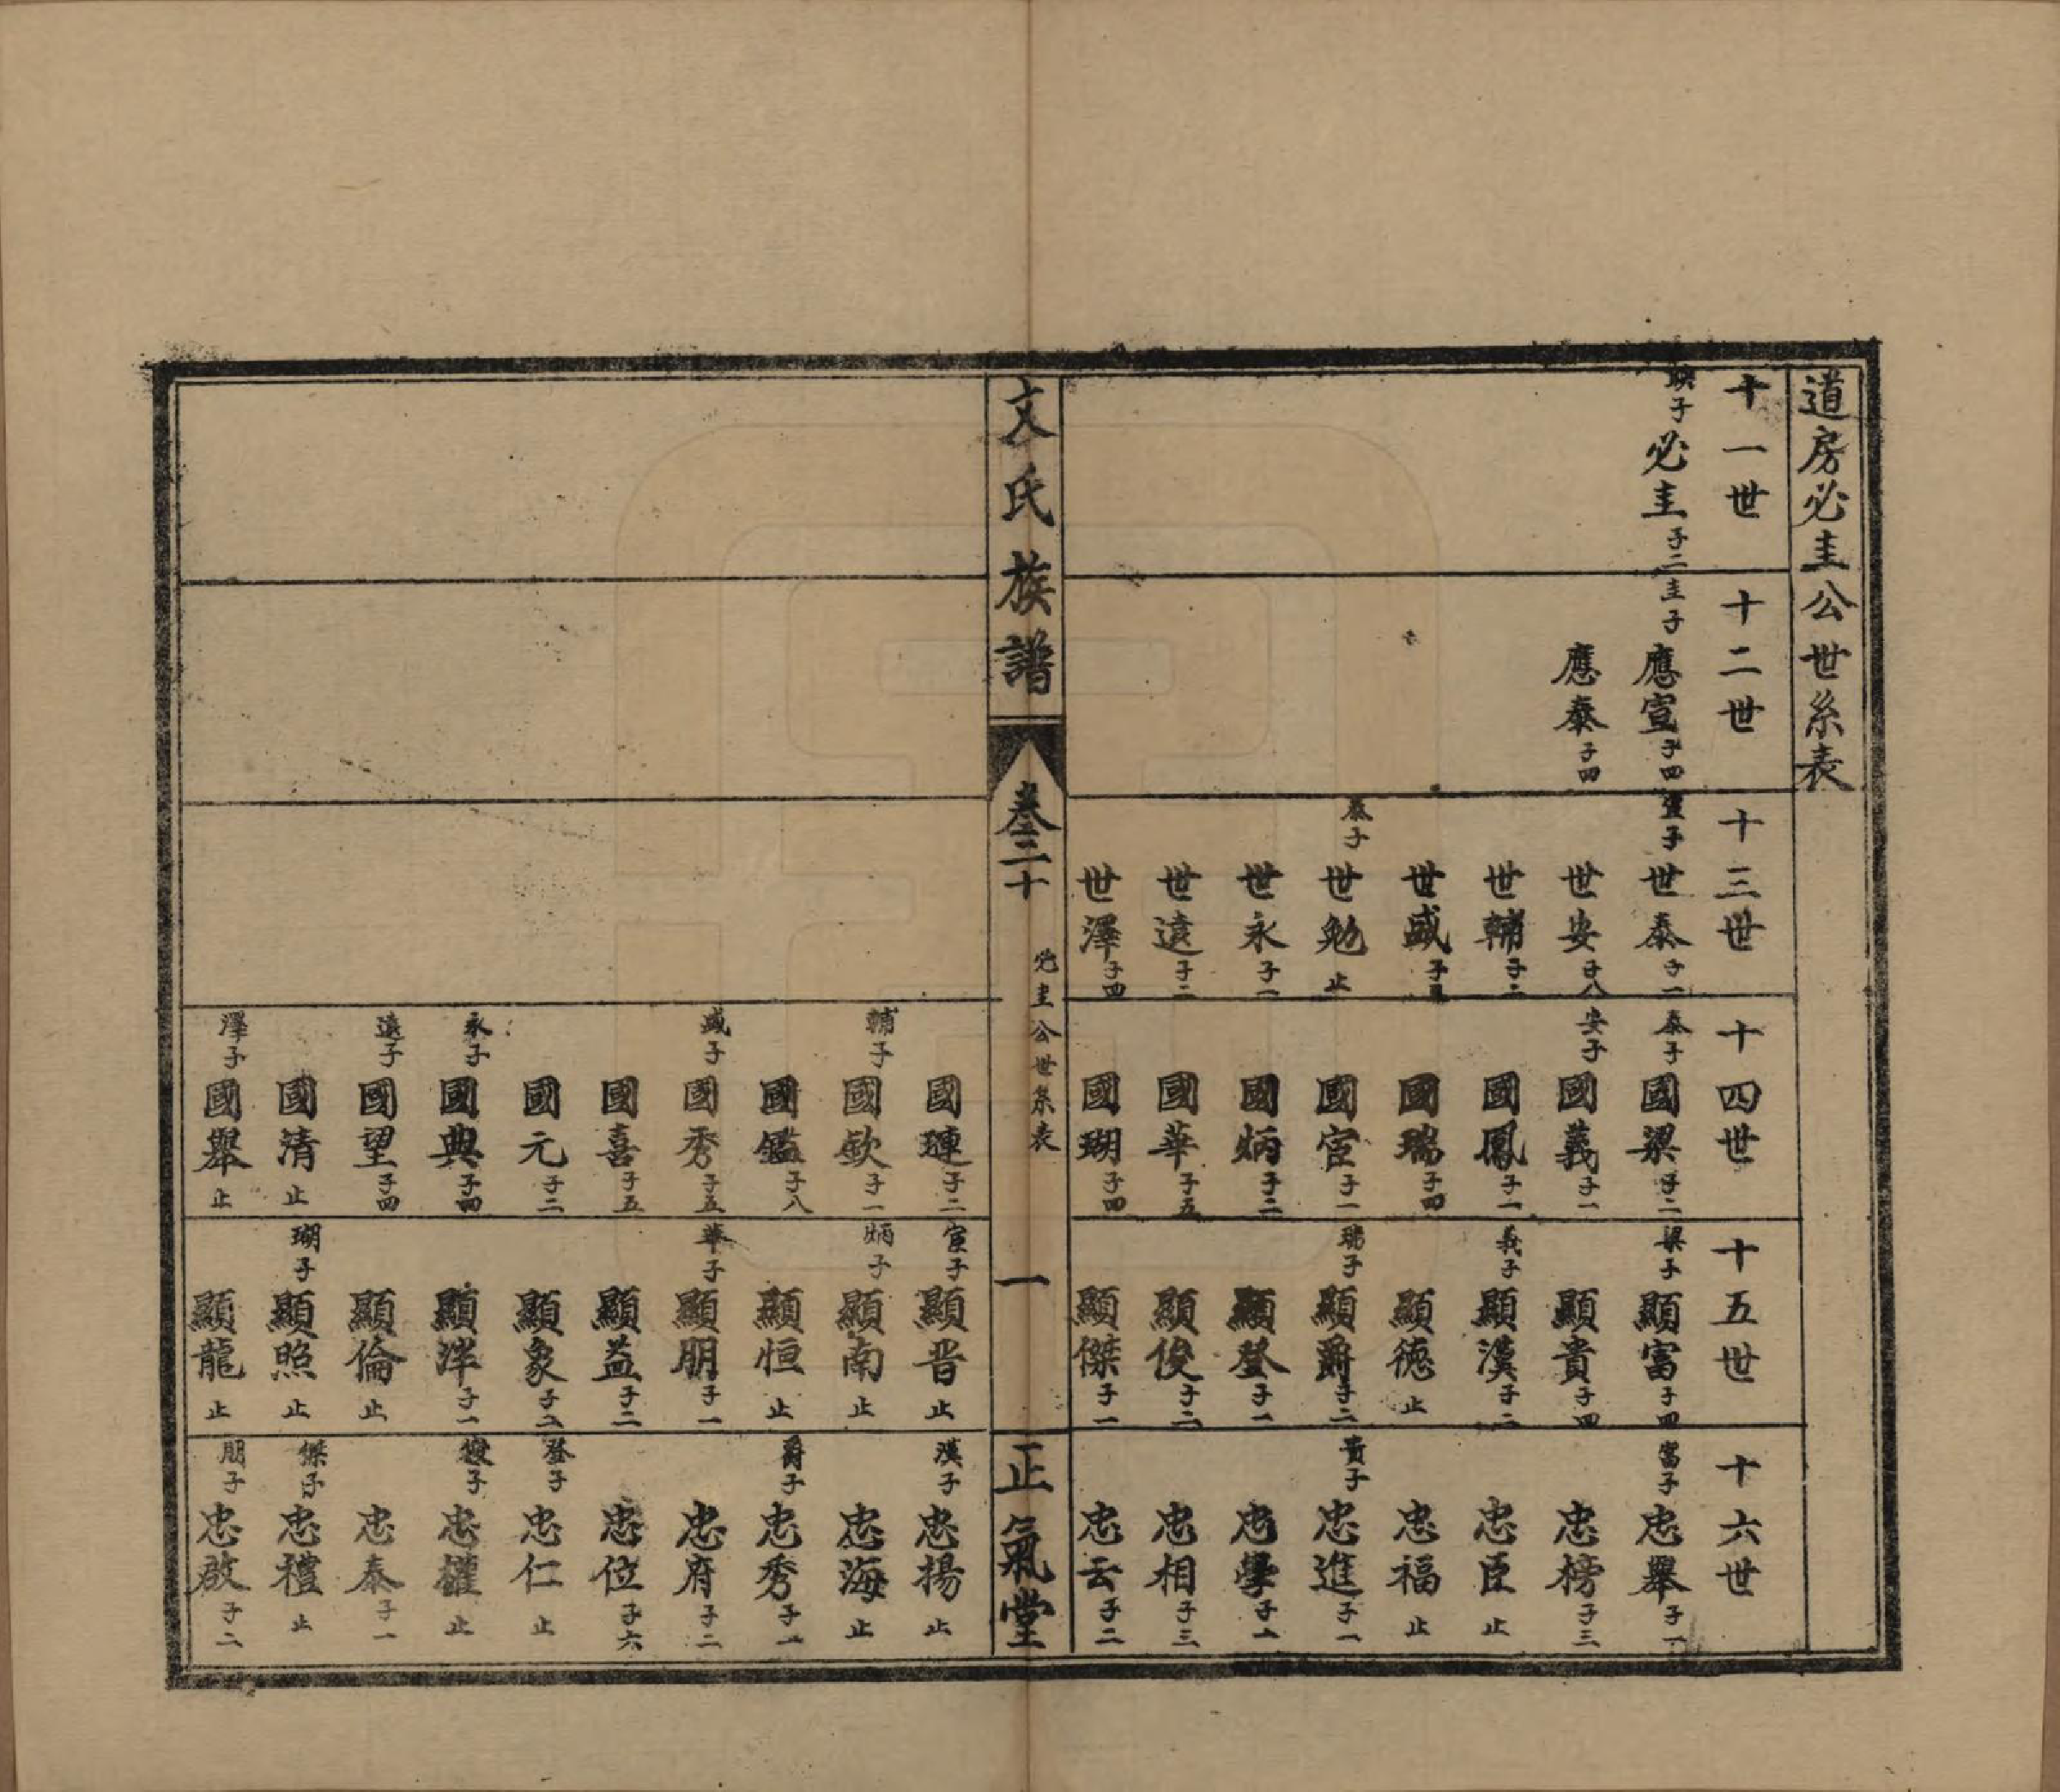 道房必圭公世系表
十一世
子必圭子二
十二世
圭子應宣子四
應泰子四
十三世
宣子世泰子一
世安子八
世輔子二
世盛子
泰子世勉止
世永子一
世遠子二
世澤子四
十四世
泰子國梁子二
安子國義子一
國鳳子一
國瑞子四
國宦子一
國炳子二
國華子五
國瑚子四
十五世
梁子顯富子四
顯貴子四
義子顯漢子二
顯德止
瑞子顯爵子二
顯登子一
顯俊子二
顯傑子一
十六世
富子忠舉子一
忠榜子三
忠臣止
忠福止
貴子忠進子一
忠學子一
忠相子三
忠云子二
文氏族譜
卷二十
必圭公世系表
一
正氣堂
國璉子二
輔子國欽子一
國鑑子八
盛子國秀子五
國喜子五
國元子二
永子國典子四
遠子國望子四
國清止
澤子國舉止
宦子顯晋止
炳子顯南止
顯恒止
華子顯朋子一
顯益子二
顯象子二
顯泮子一
顯倫止
瑚子顯照止
顯龍止
漢子忠揚止
忠海止
爵子忠秀子一
忠府子二
忠位子六
登子忠仁止
俊子忠權止
忠泰子一
傑子忠禮止
朋子忠啟子二